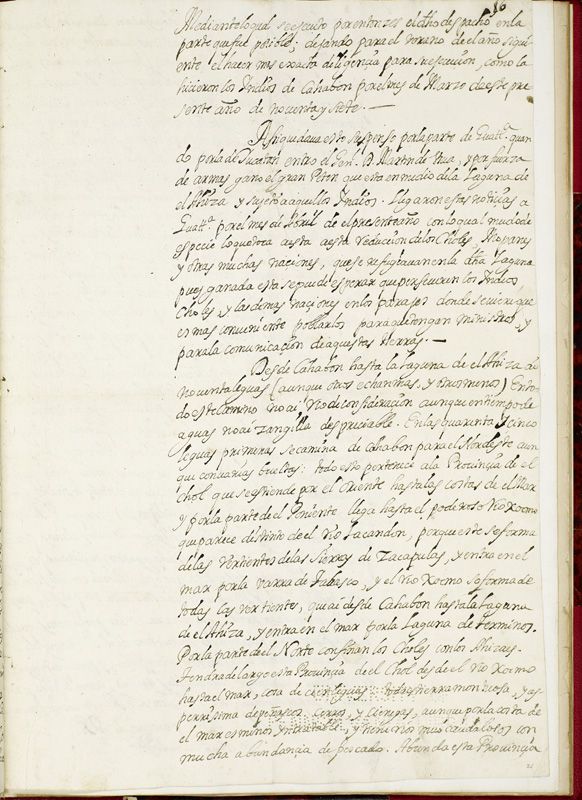 16
Mediante lo qual se executo por entonzes el dho despacho en la
parte que fué posible; dejando para el verano de el año sigui-
ente el hacer mas exacta diligencia para su execucion, como la
hicieron los Indios de Cahabon por el mes de Marzo de este pre
sente año de noventa y siete.
Assi quedava esto suspenso por la parte de Guatta quan
do por la de Yucatan entro el Genl. D. Martin de Ursua, y por fuerza
de armas gano el gran Peten que esta en medio de la Laguna de
el Ahiza y sujeto a aquellos Indios. Llegaron estas noticias a
Guatta por el mes de Abril de el presente año con lo qual mudó de
especie lo que toca a esta reduccion de los Choles, Mopanes
y otras muchas naciones, que se refugiavan en la dha Laguna
pues ganada esta se puede esperar que perseveren los Indios
Choles, y las demas naciones en los parajes donde se viere que
es mas conveniente poblarlos para que tengan ministros, y
para la comunicaçion de aquestas tierras.
Desde Cahabon hasta la Laguna de el Ahiza ai
noventa leguas (aunque otros echan mas, y otros menos) En to-
do este camino no ai rio de consideracion aunque en tiempo de
aguas no ai zangilla despreciable. En las quarenta y cinco
leguas primeras se camina de Cahabon para el Nordeste aun
que con varias bueltas: todo esto pertenece a la Provinçia de el
Chol que se estiende por el Oriente hasta las costas de el Mar
y por la parte de el Poniente llega hasta el poderoso Rio Xocmo
que parece distinto de el Rio Lacandon, porque este se forma
de las Vertientes de las Sierras de Zacapulas, y entra en el
mar por la varra de Tabasco, y el rio Xocmo se forma de
todas las vertientes, que ai desde Cahabon hasta la Laguna
de el Ahiza, y entra en el mar por la Laguna de terminos.
Por la parte de el Norte confinan los Choles con los Ahizaes.
tendra de largo esta Provinçia de el Chol desde el rio Xocmo
hasta el mar, cosa de cien leguas todas tierra montuosa, y as
perrissima de peñascos, cerros, y cienegas, aunque por la costa de
el mar es menos intratable, y tiene rios muy caudalosos con
mucha abundancia de pescado. Abunda esta Provincia